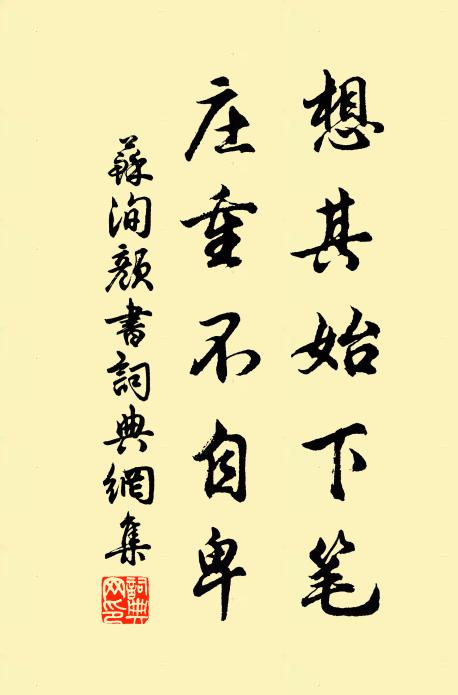 想其始下笔
庄重不自卑
蘇洵顏書詞典網集
詞典网印